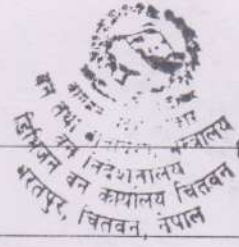 वन तथा मन्त्रालय
वन निदेशनालय
डिभिजन वन कार्यालय चितवन
भरतपुर, चितवन, नेपाल